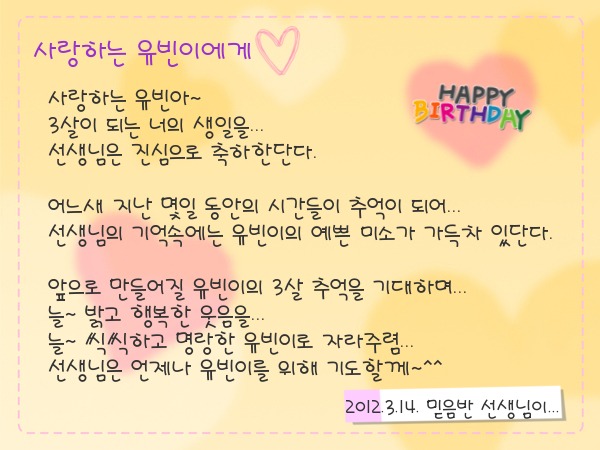 사랑하는 유빈이에게
HAPPY
BIRTHDAY
사랑하는 유빈아~
3살이 되는 너의 생일을...
선생님은 진심으로 축하한단다.
어느새 지난 몇일 동안의 시간들이 추억이 되어...
선생님의 기억속에는 유빈이의 예쁜 미소가 가득차 있단다.
앞으로 만들어질 유빈이의 3살 추억을 기대하며...
늘~ 밝고 행복한 웃음을...
늘~ 씩씩하고 명랑한 유빈이로 자라주렴...
선생님은 언제나 유빈이를 위해 기도할께~^^
2012.3.14. 믿음반 선생님이...